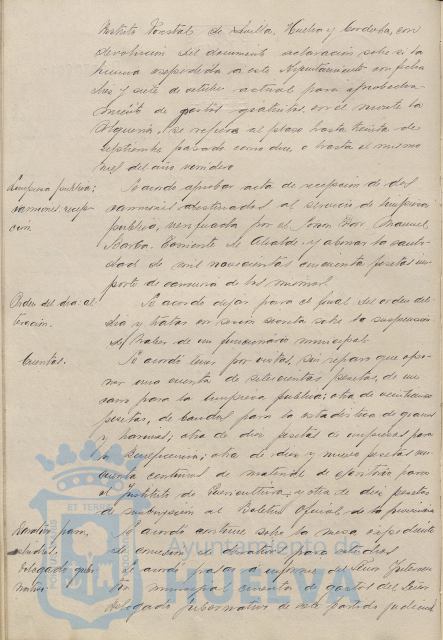 Distrito Forestal de Sevilla, Huelva y Cordoba, con
devolución del documento aclaración sobre si la
licencia expedida a este Ayuntamiento con fecha
diez y siete de actual para aprovecha-
miento de pastos gratuitos, en el monte la
Alqueria, se refiere al plazo hasta treinta de
septiembre pasado como dice, o hasta el mismo
mes del año venidero
Limpieza publica;
camiones; recep-
ción.
Se acordó aprobar acta de recepción de dos
camiones destinados al servicio de limpieza
publica, verificada por el Señor Don Manuel
Barba, Teniente de Alcalde y abonar la canti-
dad de mil novecientas cincuenta pesetas im-
porte de de los mismos.
Orden del dia: al-
teración.
Se acordó dejar para el final del orden del
dia y tratar en sesión secreta sobre la suspensión
de haber de un funcionario municipal.
Cuentas.
Se acordó tener por vistas, sin reparo que opo-
ner una cuenta de setecientas pesetas, de un
carro para la limpieza publica; otra de
pesetas, de para la estadistica de granos
y harinas; otra de diez pesetas de impresos para
la otra de diez y nueve pesetas
cuenta centimos de material de escritorio para
el Instituto de Puericultura; y otra de diez pesetas
de suscripción al Boletin Oficial de la provincia
para
Se acordó continue sobre la mesa expediente
Delegado guber-
nativo
Se acordó pasar a informe del Señor Interven-
tor municipal cuenta de gastos del Señor
Delegado gubernativo de este partido judicial
ET TERRAE
Ayuntamiento de
HUELVA